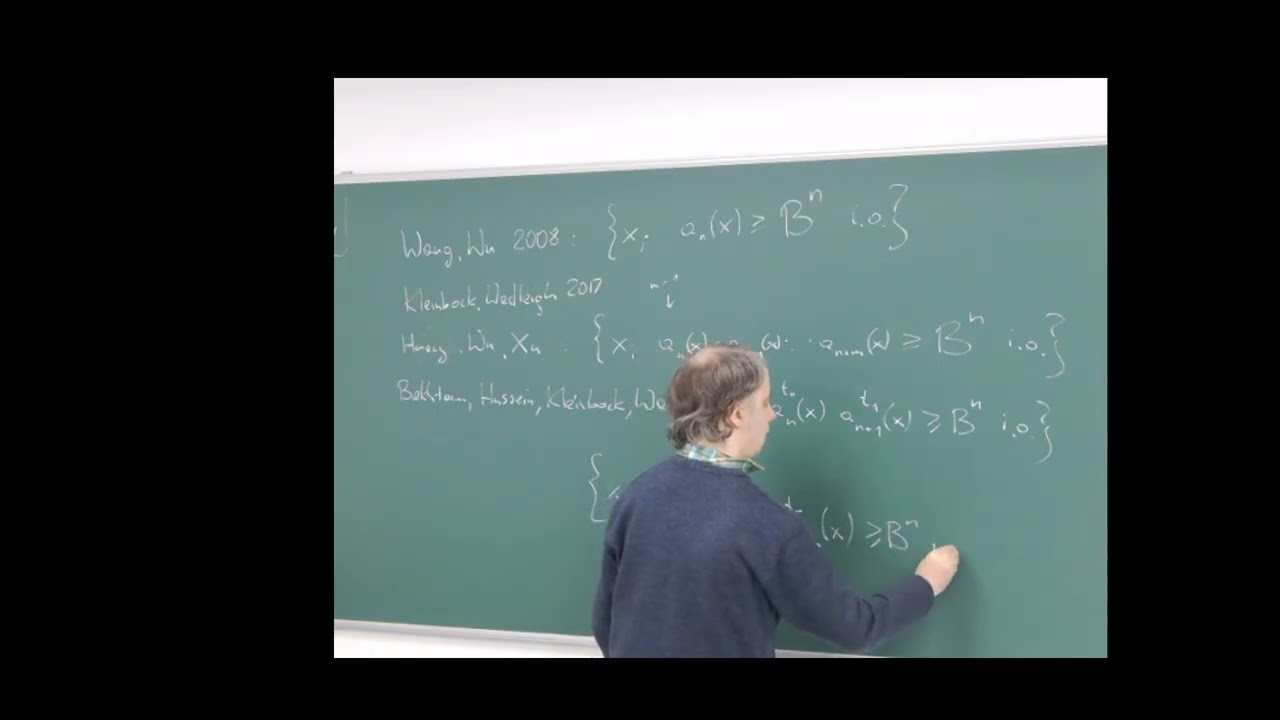 Wang, Wu 2008 : { x; aₙ(x) ≥ Bⁿ i.o. }
Kleinbock, Wadleigh 2017
↓
Huang, Wu, Xu : { x; aₙ(x) … aₙ₊ₘ(x) ≥ Bⁿ i.o. }
Hussein, Kleinbock, aₙ^{t₀}(x) aₙ₊₁^{t₁}(x) ≥ Bⁿ i.o. }
{ (x) ≥ Bⁿ